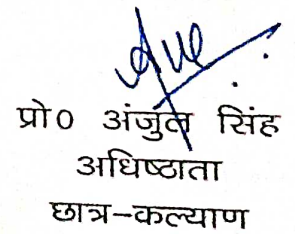 प्रो0 अंजुल सिंह
अधिष्ठाता
छात्र-कल्याण